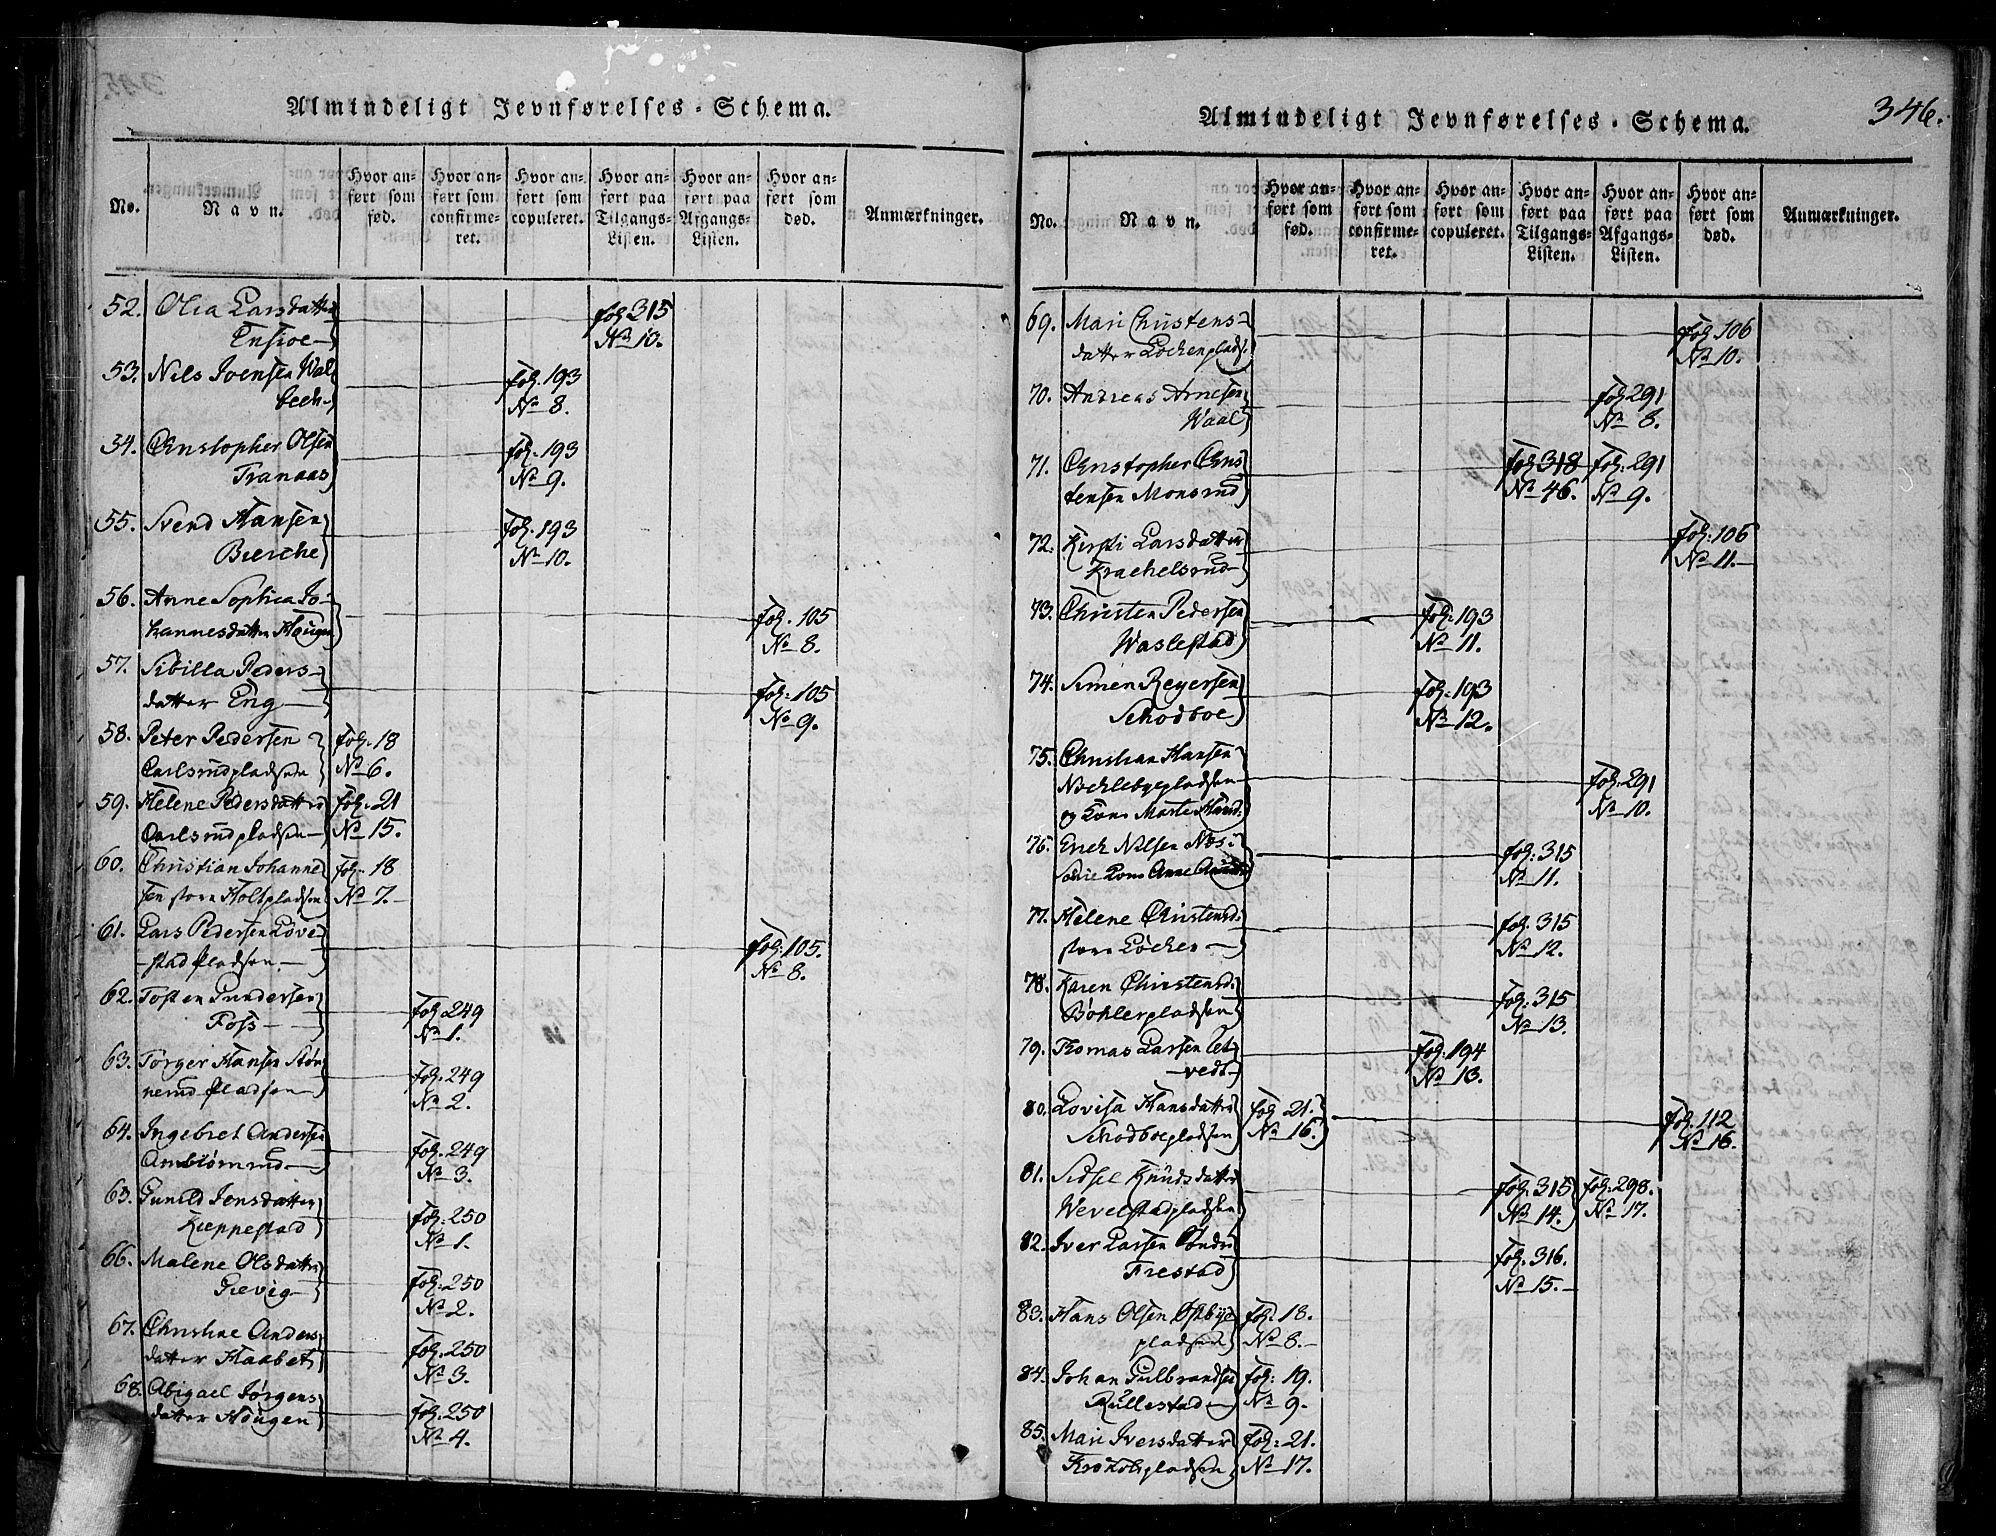 Almindeligt Jevnførelses-Schema.
No.
Navn.
Hvor an-
ført som
fød.
Hvor an-
ført som
confirme-
ret.
Hvor an-
ført som
copuleret.
Hvor an-
ført paa
Tilgangs-
Listen.
Hvor an-
ført paa
Afgangs-
Listen.
Hvor an-
ført som
død.
Anmærkninger.
52. Olia Larsdatter fol: 315
Ensioe No 10.
53. Nils Ivensen Wal fol: 193
bech No 8.
34. Christopher Olsen fol: 193
Tranaas No 9.
55. Svend Hansen fol: 193
Bierche No 10.
56. Anne Sophia Jo- fol. 105
hannesdatter Hougen No 8.
57. Sibilla Peders- fol: 105
datter Eng No 9.
58. Peter Pedersen fol. 18
Carlsrudpladsen No 6.
59. Helene Pedersdatter fol. 21
Carlsrudpladsen No 15.
60. Christian Johanne fol. 18
sen store Holtpladsen No 7.
61. Lars Pedersen Løve- fol. 105.
stad pladsen No 8.
62. Tosten Gundersen fol. 249
Foss No 1.
63. Torger Hansen Støn fol. 249
nerud pladsen No 2.
64. Ingebret Andersen fol. 249
Ambiørnrud No 3.
63. Gunild Jensdatter fol: 250
Kieppestad No 1.
66. Malene Olsdatter fol. 250
Grevig No 2.
67. Christine Anders fol. 250
datter Haabet No 3.
68. Abigael Jørgens fol. 250
datter Hougen No 4.
346.
Almindeligt Jevnførelses-Schema.
No.
Navn.
Hvor an-
ført som
fød.
Hvor an-
ført som
confirme-
ret.
Hvor an-
ført som
copuleret.
Hvor an-
ført paa
Tilgangs-
Listen.
Hvor an-
ført paa
Afgangs-
Listen.
Hvor an-
ført som
død.
Anmærkninger.
69. Mari Christens- fol: 106
datter Løchenpladsen No 10.
70. Andreas Arnesen fol: 291
Waal No 8.
71. Christopher Chris fol: 318 fol: 291
tensen Monsrud No 46. No 9.
72. Kirsti Larsdatter fol: 106
Krachelsrud No 11.
73. Christen Pedersen fol: 193
Waslestad No 11.
74. Simen Reyersen fol: 193
Schodboe No 12.
75. Christian Hansen
Nochlebyepladsen fol: 291
og Kone Marte Hansd. No 10.
76. Erich Nilsen Næs- fol: 315
Kone Anne No 11.
77. Helene Christensd: fol: 315
store Løchen No 12.
78. Karen Christensd: fol: 315
Bøhlerpladsen No 13.
79. Thomas Larsen fol: 194
vedt No 13.
80. Lovisa Hansdatter fol. 21. fol. 112
Schodboepladsen No 16. No 16.
81. Sidsel Knudsdatter fol. 315 fol: 298.
Wevelstadpladsen No 14. No 17.
82. Iver Larsen Søndre fol. 316.
Frestad No 15.
83. Hans Olsen Østbye fol: 18.
pladsen No 8.
84. Johan Gulbrandsen fol: 19.
Rullestad No 9.
85. Mari Iversdatter fol: 21.
pladsen No 17.